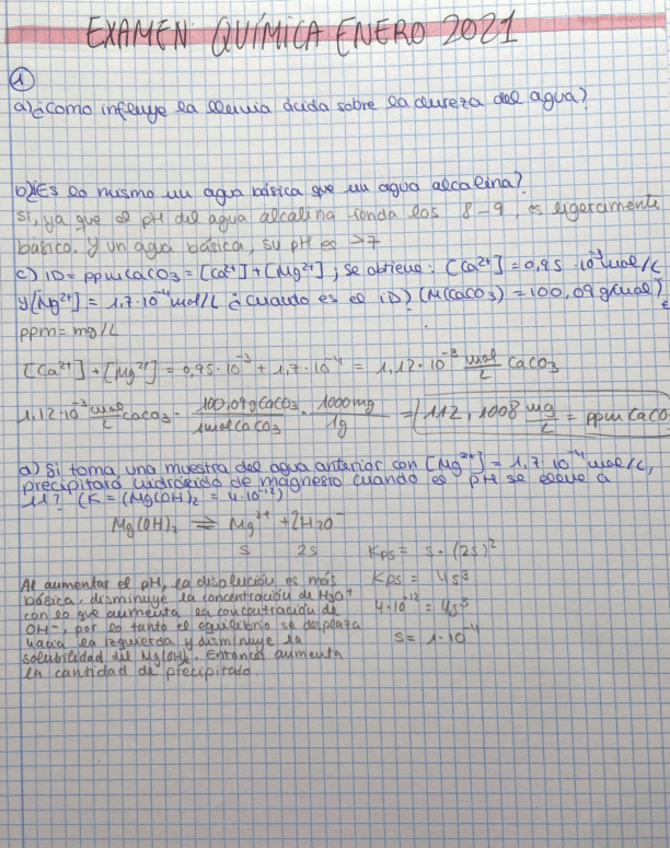 EXAMEN QUÍMICA ENERO 2021
1
a) ¿Como influye la lluvia ácida sobre la dureza del agua?
b) ¿Es lo mismo un agua básica que un agua alcalina?
Si, ya que el pH del agua alcalina ronda los 8-9, es ligeramente
básico. Y un agua básica, su pH es >7
c) ID = ppm CaCO3 = [Ca²⁺] + [Mg²⁺] ; se obtiene: [Ca²⁺] = 0,95 · 10⁻³ mol/L
y [Mg²⁺] = 1,7 · 10⁻⁴ mol/L ¿cuando es el ID) (M(CaCO3) = 100,09 g/mol)
ppm = mg/L
[Ca²⁺] + [Mg²⁺] = 0,95 · 10⁻³ + 1,7 · 10⁻⁴ = 1,12 · 10⁻³ mol/L CaCO3
1,12 · 10⁻³ mol/L CaCO3 · 100,09 g CaCO3/1 mol CaCO3 · 1000 mg/1 g = 112,1008 mg/L = ppm CaCO
d) Si toma una muestra del agua anterior con [Mg²⁺] = 1,7 · 10⁻⁴ mol/L,
precipitará hidróxido de magnesio cuando el pH se eleve a
11? (K = (Mg(OH)2 = 4 · 10⁻¹²)
Mg(OH)2 ⇌ Mg²⁺ + 2H2O⁻
s 2s Kps = s · (2s)²
Al aumentar el pH, la disolución es más Kps = 4s³
básica, disminuye la concentración de H3O⁺
con lo que aumenta la concentración de 4·10⁻¹² = 4s³
OH⁻, por lo tanto el equilibrio se desplaza
hacia la izquierda y disminuye la s = 1·10⁻⁴
solubilidad del Mg(OH)2. Entonces aumenta
la cantidad de precipitado.